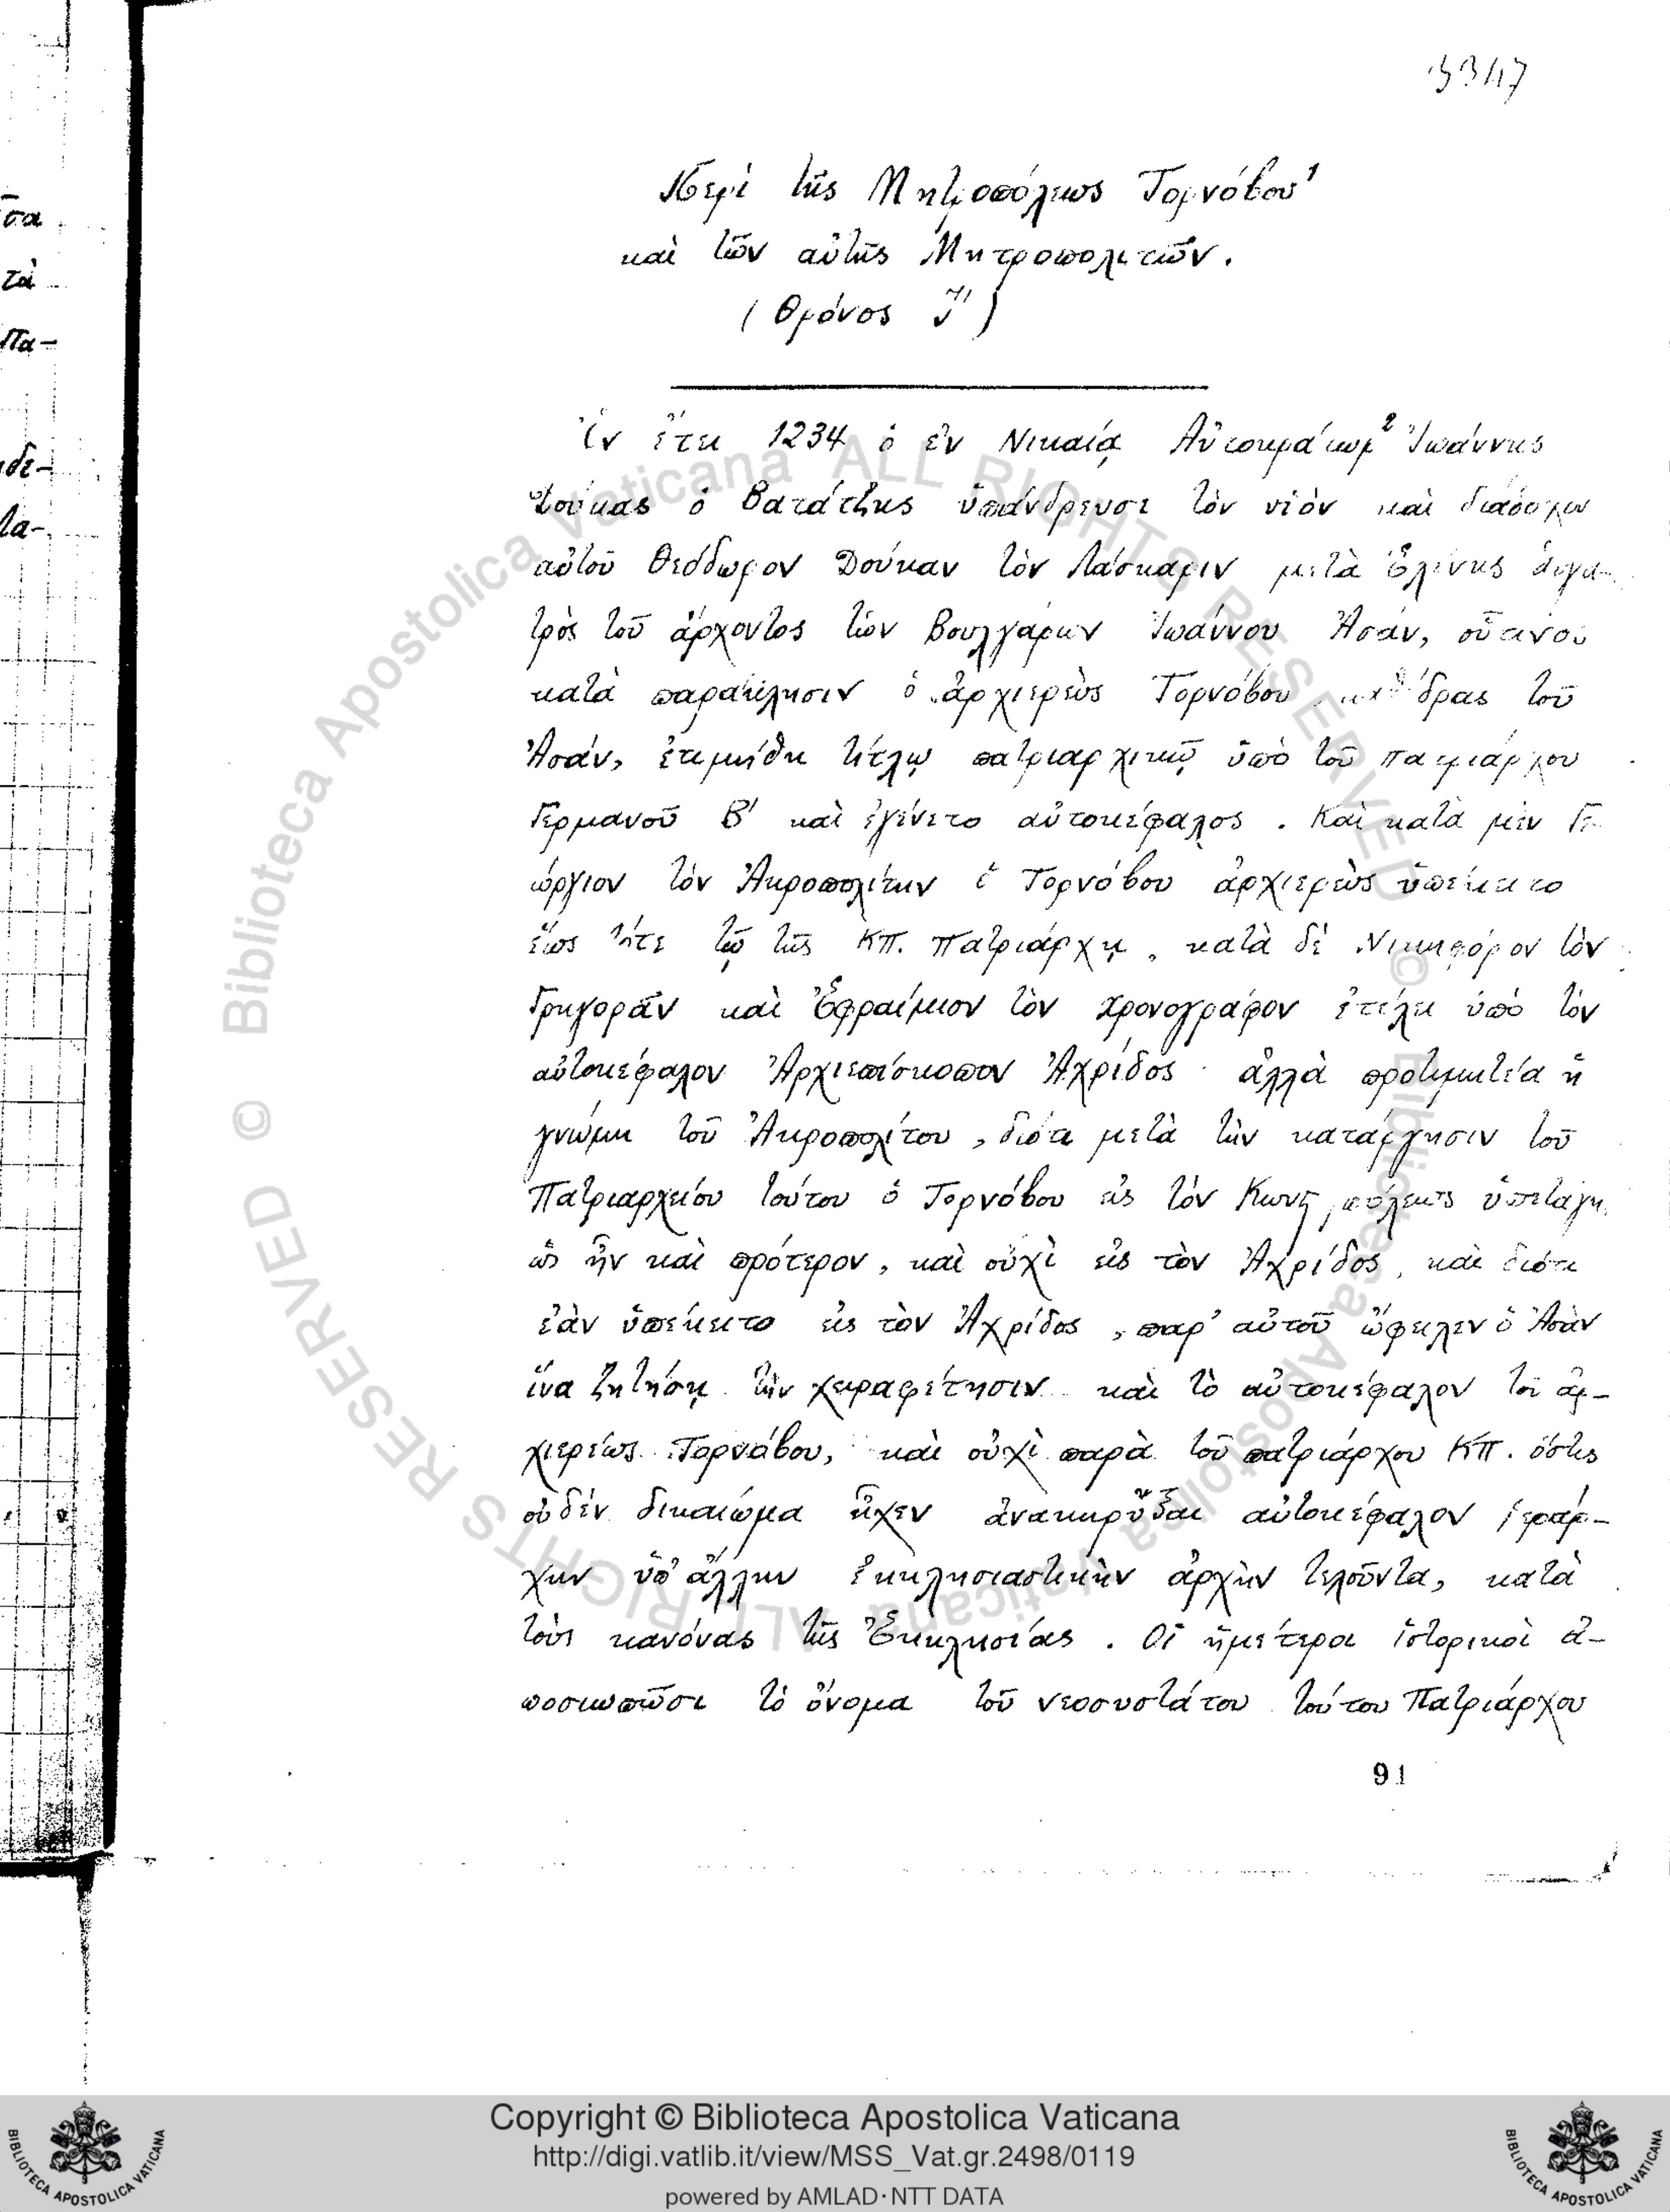 Περὶ τῆς Μητροπόλεως Τορνόβου¹
καὶ τῶν αὐτῆς Μητροπολιτῶν.
(Θρόνος
Ἐν ἔτει 1234 ὁ ἐν Νικαίᾳ Αὐτοκράτωρ² Ἰωάννης
Δούκας ὁ Βατάτζης ὑπάνδρευσε τὸν υἱὸν καὶ διάδοχον
αὐτοῦ Θεόδωρον Δούκαν τὸν Λάσκαριν μετὰ Ἑλένης θυγα-
τρὸς τοῦ ἄρχοντος τῶν Βουλγάρων Ἰωάννου Ἀσάν,
κατὰ παρακλησιν ὁ ἀρχιερεὺς Τορνόβου καθέδρας τοῦ
Ἀσάν, ἐτιμήθη τίτλῳ πατριαρχικῷ ὑπὸ τοῦ πατριάρχου
Γερμανοῦ Β' καὶ ἐγένετο αὐτοκέφαλος. Καὶ κατὰ μὲν Γε
ώργιον τὸν Ἀκροπολίτην ὁ Τορνόβου ἀρχιερεὺς ὑπέκειτο
ἕως τότε τῷ τῆς ΚΠ. Πατριάρχῃ, κατὰ δὲ Νικηφόρον τὸν
Γρηγορᾶν καὶ Ἐφραίμιον τὸν χρονογράφον ἐτέλει ὑπὸ τὸν
αὐτοκέφαλον Ἀρχιεπίσκοπον Ἀχρίδος· ἀλλὰ προτιμητέα ἡ
γνώμη τοῦ Ἀκροπολίτου, διότι μετὰ τὴν κατάργησιν τοῦ
Πατριαρχείου τούτου ὁ Τορνόβου εἰς τὸν Κωνς πόλεως ὑπετάγη,
ὡς ἦν καὶ πρότερον, καὶ οὐχὶ εἰς τὸν Ἀχρίδος, καὶ διότι
ἐὰν ὑπέκειτο εἰς τὸν Ἀχρίδος, παρ' αὐτοῦ ὤφειλεν ὁ Ἀσὰν
ἵνα ζητήσῃ τὴν χειραφέτησιν καὶ τὸ αὐτοκέφαλον τοῦ ἀρ-
χιερέως Τορνόβου, καὶ οὐχὶ παρὰ τοῦ πατριάρχου ΚΠ. ὅστις
οὐδὲν δικαίωμα εἶχεν ἀνακηρῦξαι αὐτοκέφαλον ἱεράρ-
χην ὑπ' ἄλλην ἐκκλησιαστικὴν ἀρχὴν τελοῦντα, κατὰ
τοὺς κανόνας τῆς Ἐκκλησίας. Οἱ ἡμέτεροι ἱστορικοὶ ἀ-
ποσιωπῶσι τὸ ὄνομα τοῦ νεοσυστάτου τούτου Πατριάρχου
91
σα
τὰ
Πα-
δε-
τα-
© Biblioteca Apostolica Vaticana ALL RIGHTS RESERVED © Biblioteca Apostolica Vaticana ALL RIGHTS RESERVED
Copyright © Biblioteca Apostolica Vaticana
http://digi.vatlib.it/view/MSS_Vat.gr.2498/0119
powered by AMLAD·NTT DATA
BIBLIOTECA APOSTOLICA VATICANA
BIBLIOTECA APOSTOLICA VATICANA